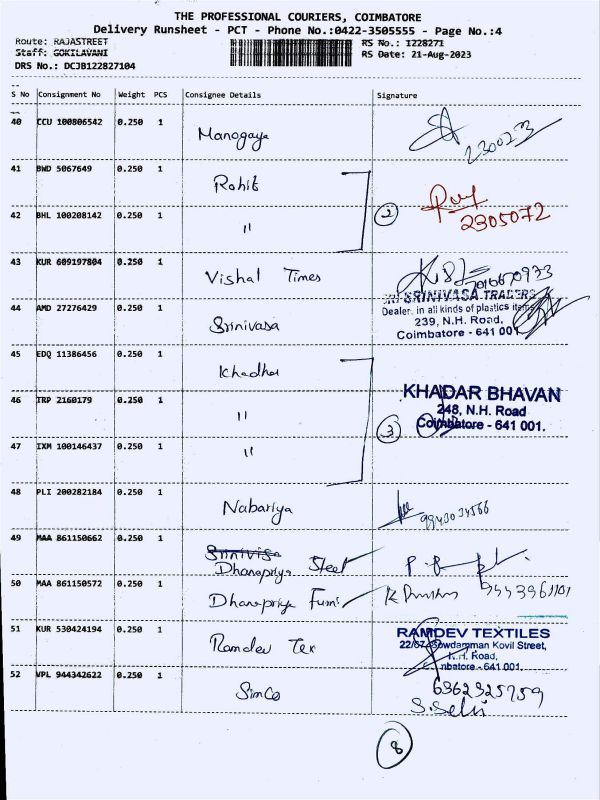 THE PROFESSIONAL COURIERS, COIMBATORE
Delivery Runsheet - PCT - Phone No.:0422-3505555 - Page No.:4
Route: RAJASTREET RS No.: 1228271
Staff: GOKILAVANI RS Date: 21-Aug-2023
DRS No.: DCJB122827104
S No Consignment No Weight PCS Consignee Details Signature
40 CCU 100806542 0.250 1 Manogaya 2300233
41 BWD 5067649 0.250 1 Rohit
42 BHL 100208142 0.250 1 " 2 2305072
43 KUR 609197804 0.250 1 Vishal Times
SRI SRINIVASA TRADERS
Dealer. in all kinds of plastics items
44 AMD 27276429 0.250 1 Srinivasa 239, N.H. Road,
Coimbatore - 641 001
45 EDQ 11386456 0.250 1 Khadhar
KHADAR BHAVAN
46 TRP 2160179 0.250 1 " 248, N.H. Road
3 Coimbatore - 641 001.
47 IXM 100146437 0.250 1 "
48 PLI 200282184 0.250 1 Nabariya
49 MAA 861150662 0.250 1 Srinivisa
Dhanapriya Steel
50 MAA 861150572 0.250 1 Dhanapriya Furni
51 KUR 530424194 0.250 1 Ramdev Tex RAMDEV TEXTILES
Sowdamman Kovil Street,
N.H. Road,
mbatore - 641 001.
52 VPL 944342622 0.250 1 SimCo 6362325759
S. Selvi
8